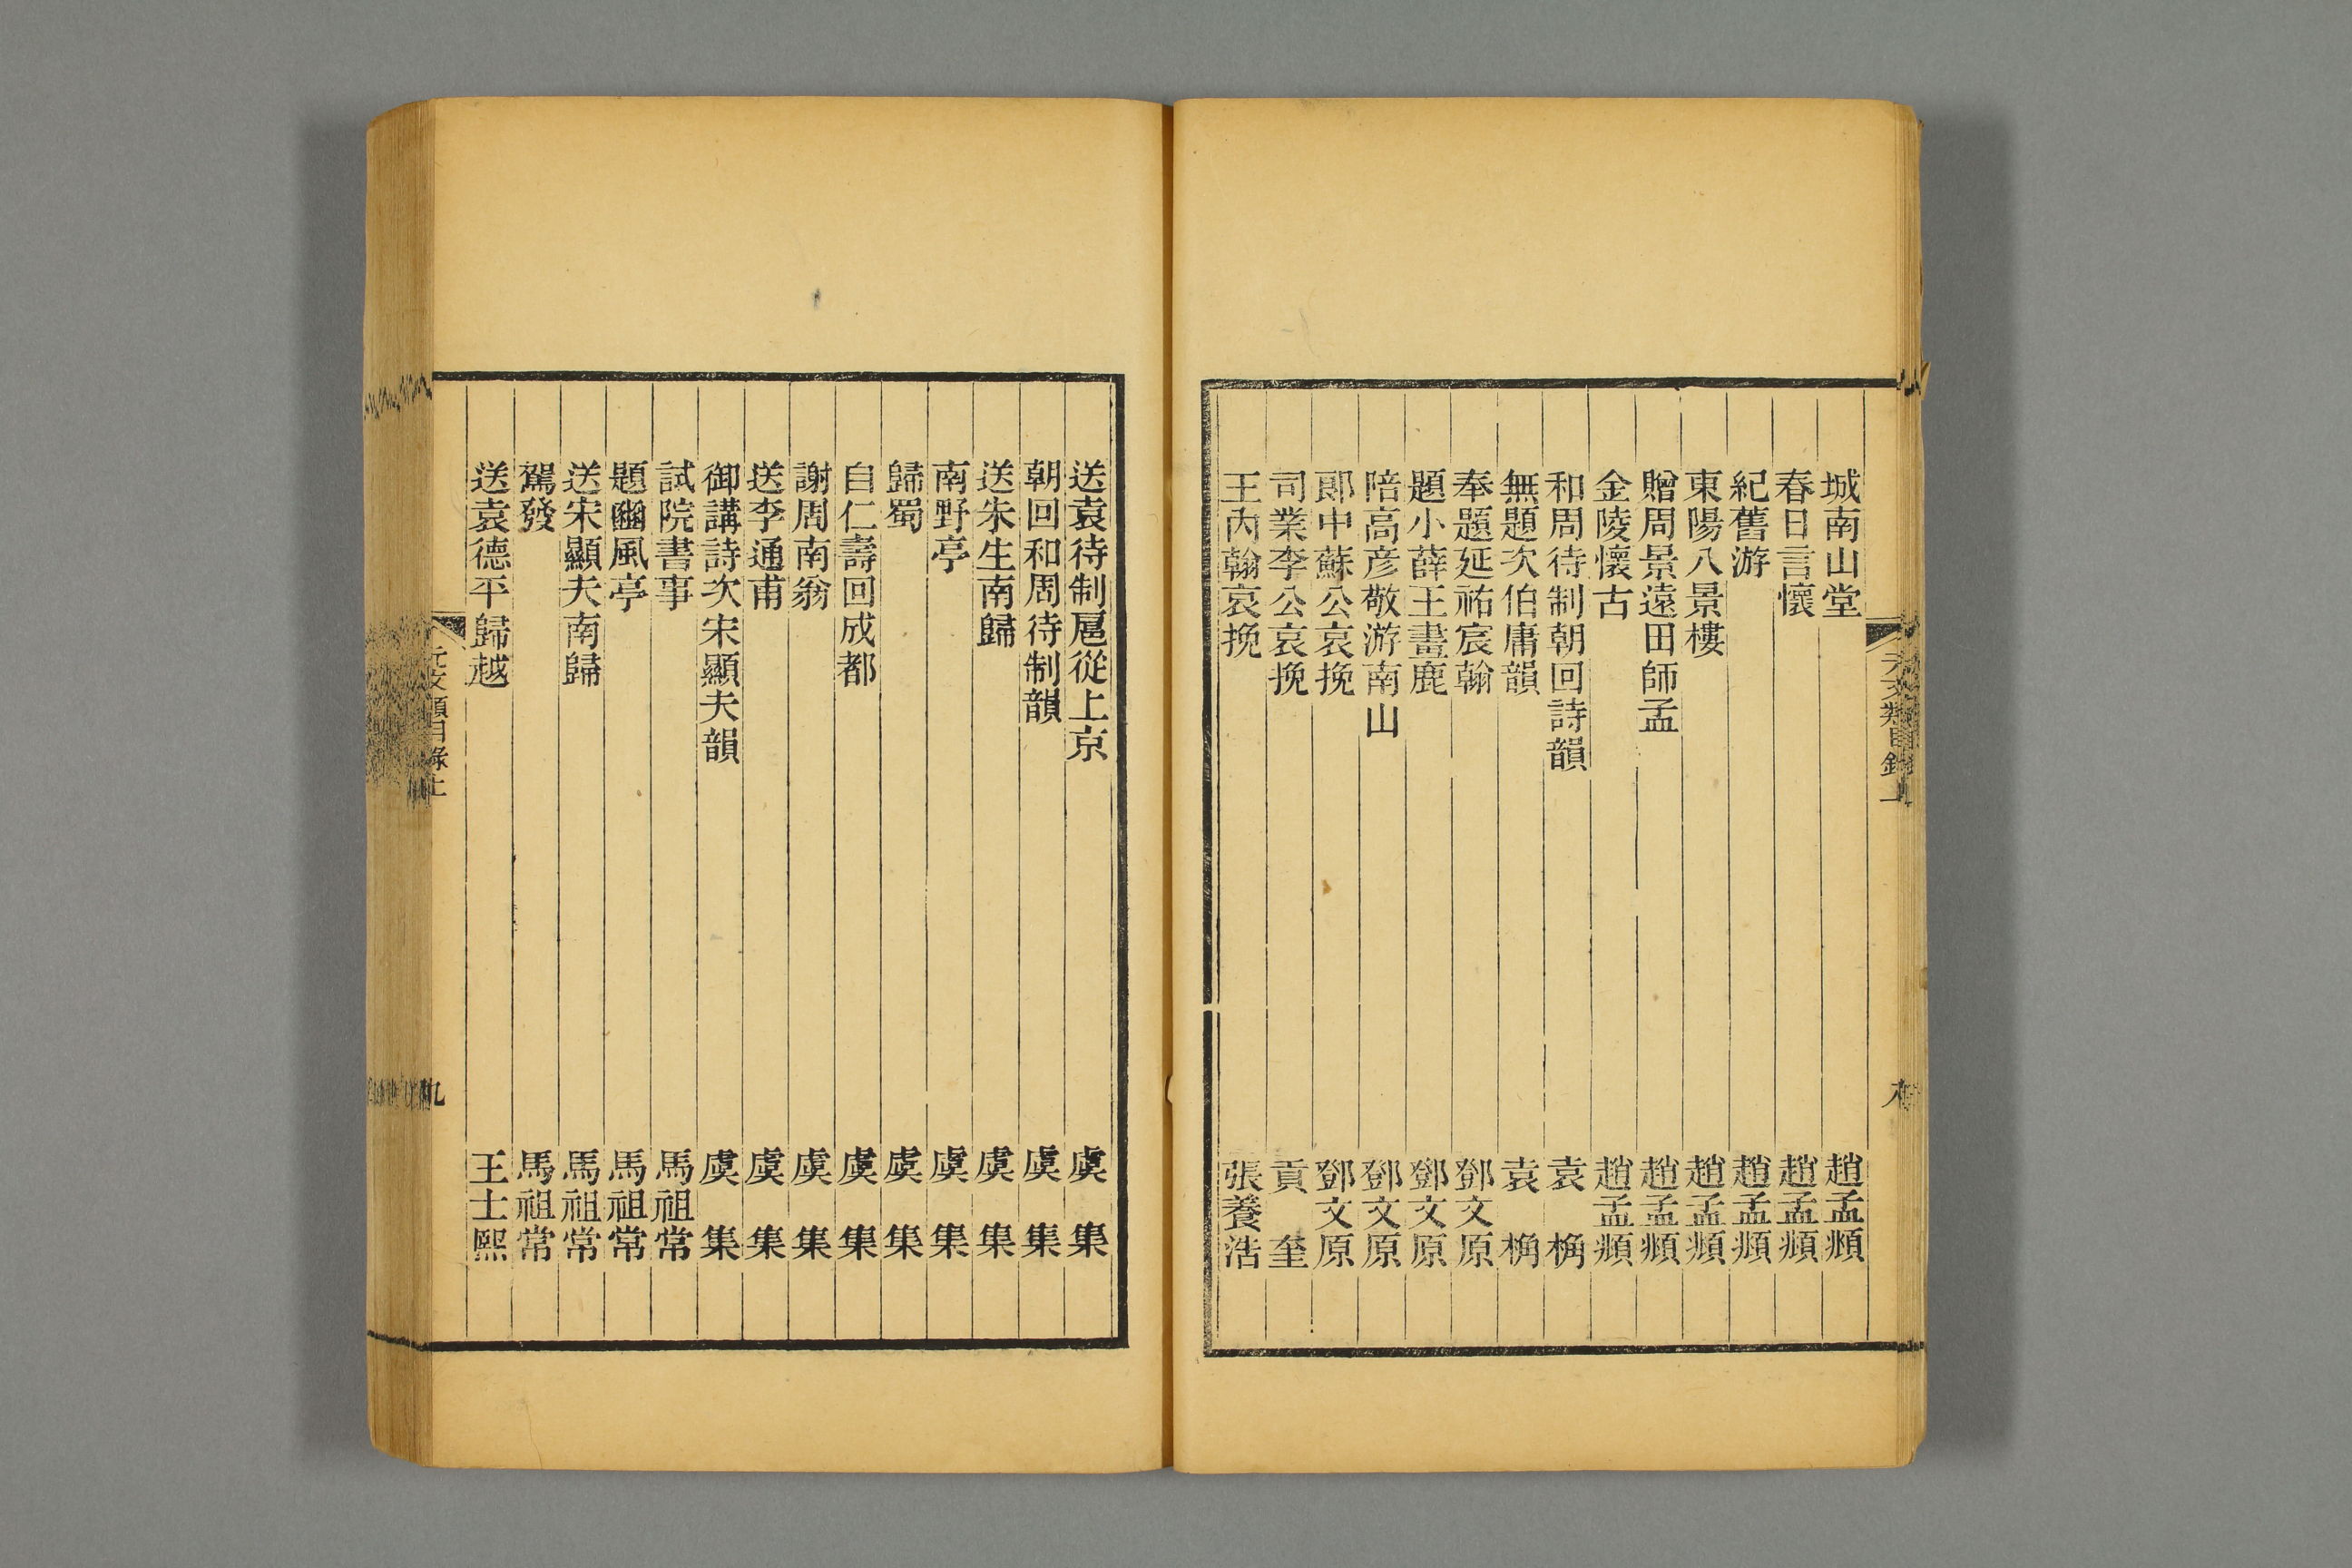 城南山堂　趙孟頫
春日言懷　趙孟頫
紀舊游　趙孟頫
東陽八景樓　趙孟頫
贈周景遠田師孟　趙孟頫
金陵懷古　趙孟頫
和周待制朝回詩韻　袁　桷
無題次伯庸韻　袁　桷
奉題延祐宸翰　鄧文原
題小薛王畫鹿　鄧文原
陪高彥敬游南山　鄧文原
郎中蘇公哀挽　鄧文原
司業李公哀挽　貢　奎
王內翰哀挽　張養浩
送袁待制扈從上京　虞　集
朝回和周待制韻　虞　集
送朱生南歸　虞　集
南野亭　虞　集
歸蜀　虞　集
自仁壽回成都　虞　集
謝周南翁　虞　集
送李通甫　虞　集
御講詩次宋顯夫韻　虞　集
試院書事　馬祖常
題豳風亭　馬祖常
送宋顯夫南歸　馬祖常
駕發　馬祖常
送袁德平歸越　王士熙
元文類目錄上
九